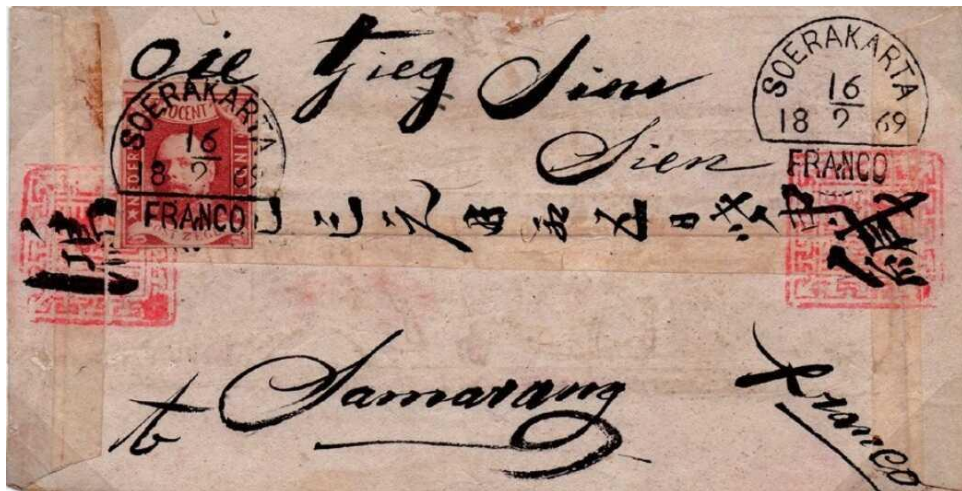 Oie Tjieg Sien
Sien
SOERAKARTA
16
18 2 69
FRANCO
SOERAKARTA
16
18 2 69
FRANCO
己巳元月初五日
te Samarang
Franco